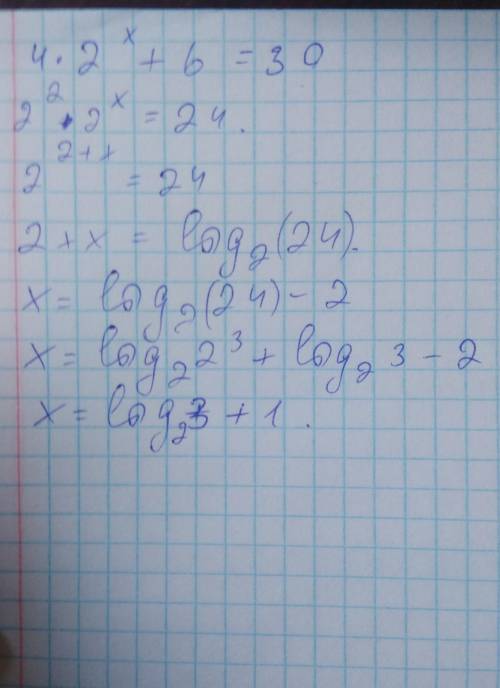 4 · 2^x + 6 = 30
2^2 · 2^x = 24.
2^(2+x) = 24
2 + x = log₂(24).
x = log₂(24) - 2
x = log₂ 2^3 + log₂ 3 - 2
x = log₂ 3 + 1.